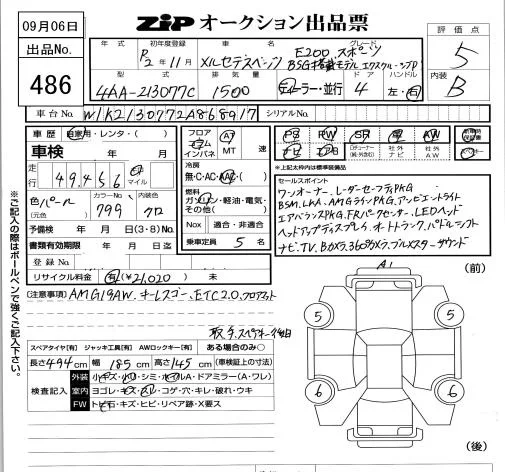 09月06日
ZiP オークション出品票
出品No. 486
年式 初年度登録 車名 グレード 評価点
R2年11月 メルセデスベンツ E200 スポーツ
BSG搭載モデル エクスクルーシブP
5
型式 排気量 ドア ハンドル 内装
4AA-213077C 1500 ディーラー・並行 4 左・右 B
車台No. W1K2130772A868917 シリアルNo.
車歴 自家用・レンタ・( )
車検 年 月
走行 49,456 Km マイル
色 パール カラーNo. 799 内装色 クロ
(元色)
予備検 年 月 日(3・8)No.
書類有効期限 年 月 日迄
登録No.
リサイクル料金 有(¥21,020) 未
フロア コラム インパネ AT MT 速
冷房 無・C・AC・AAC
燃料 ガソリン・軽油・電気・その他( )
Nox 適合・非適合
乗車定員 5 名
PS PW SR 革 AW 新車時保証書
ナビ TV エアB
※上記太枠内は標準装備品
セールスポイント
ワンオーナー、レーダーセーフティPKG
BSM、LKA、AMGラインPKG、アンビエントライト
エアバランスPKG、FRパークセンサー、LEDヘッド
ヘッドアップディスプレイ、オートトランク、パドルシフト
ナビ、TV、Bカメラ、360°カメラ、ブルメスターサウンド
(注意事項) AMG19AW、キーレスゴー、ETC2.0、フロアマット
取、予、スペアキー後日
スペアタイヤ[有] ジャッキ工具[有] AWロックキー[有] ある場合のみ○
長さ494cm 幅185cm 高さ145cm (車検証上の寸法)
検査記入
外装 小キズ・小凹・シミ・ホイルA・ドアミラー(A・ワレ)
室内 ヨゴレ・キズ・スレ・コゲ・穴・キレ・破れ・ウキ
FW トビ石・キズ・ヒビ・リペア跡・X要ス
A1
(前)
5 5
6 6
(後)
※ご記入の際はボールペンで強くご記入下さい。